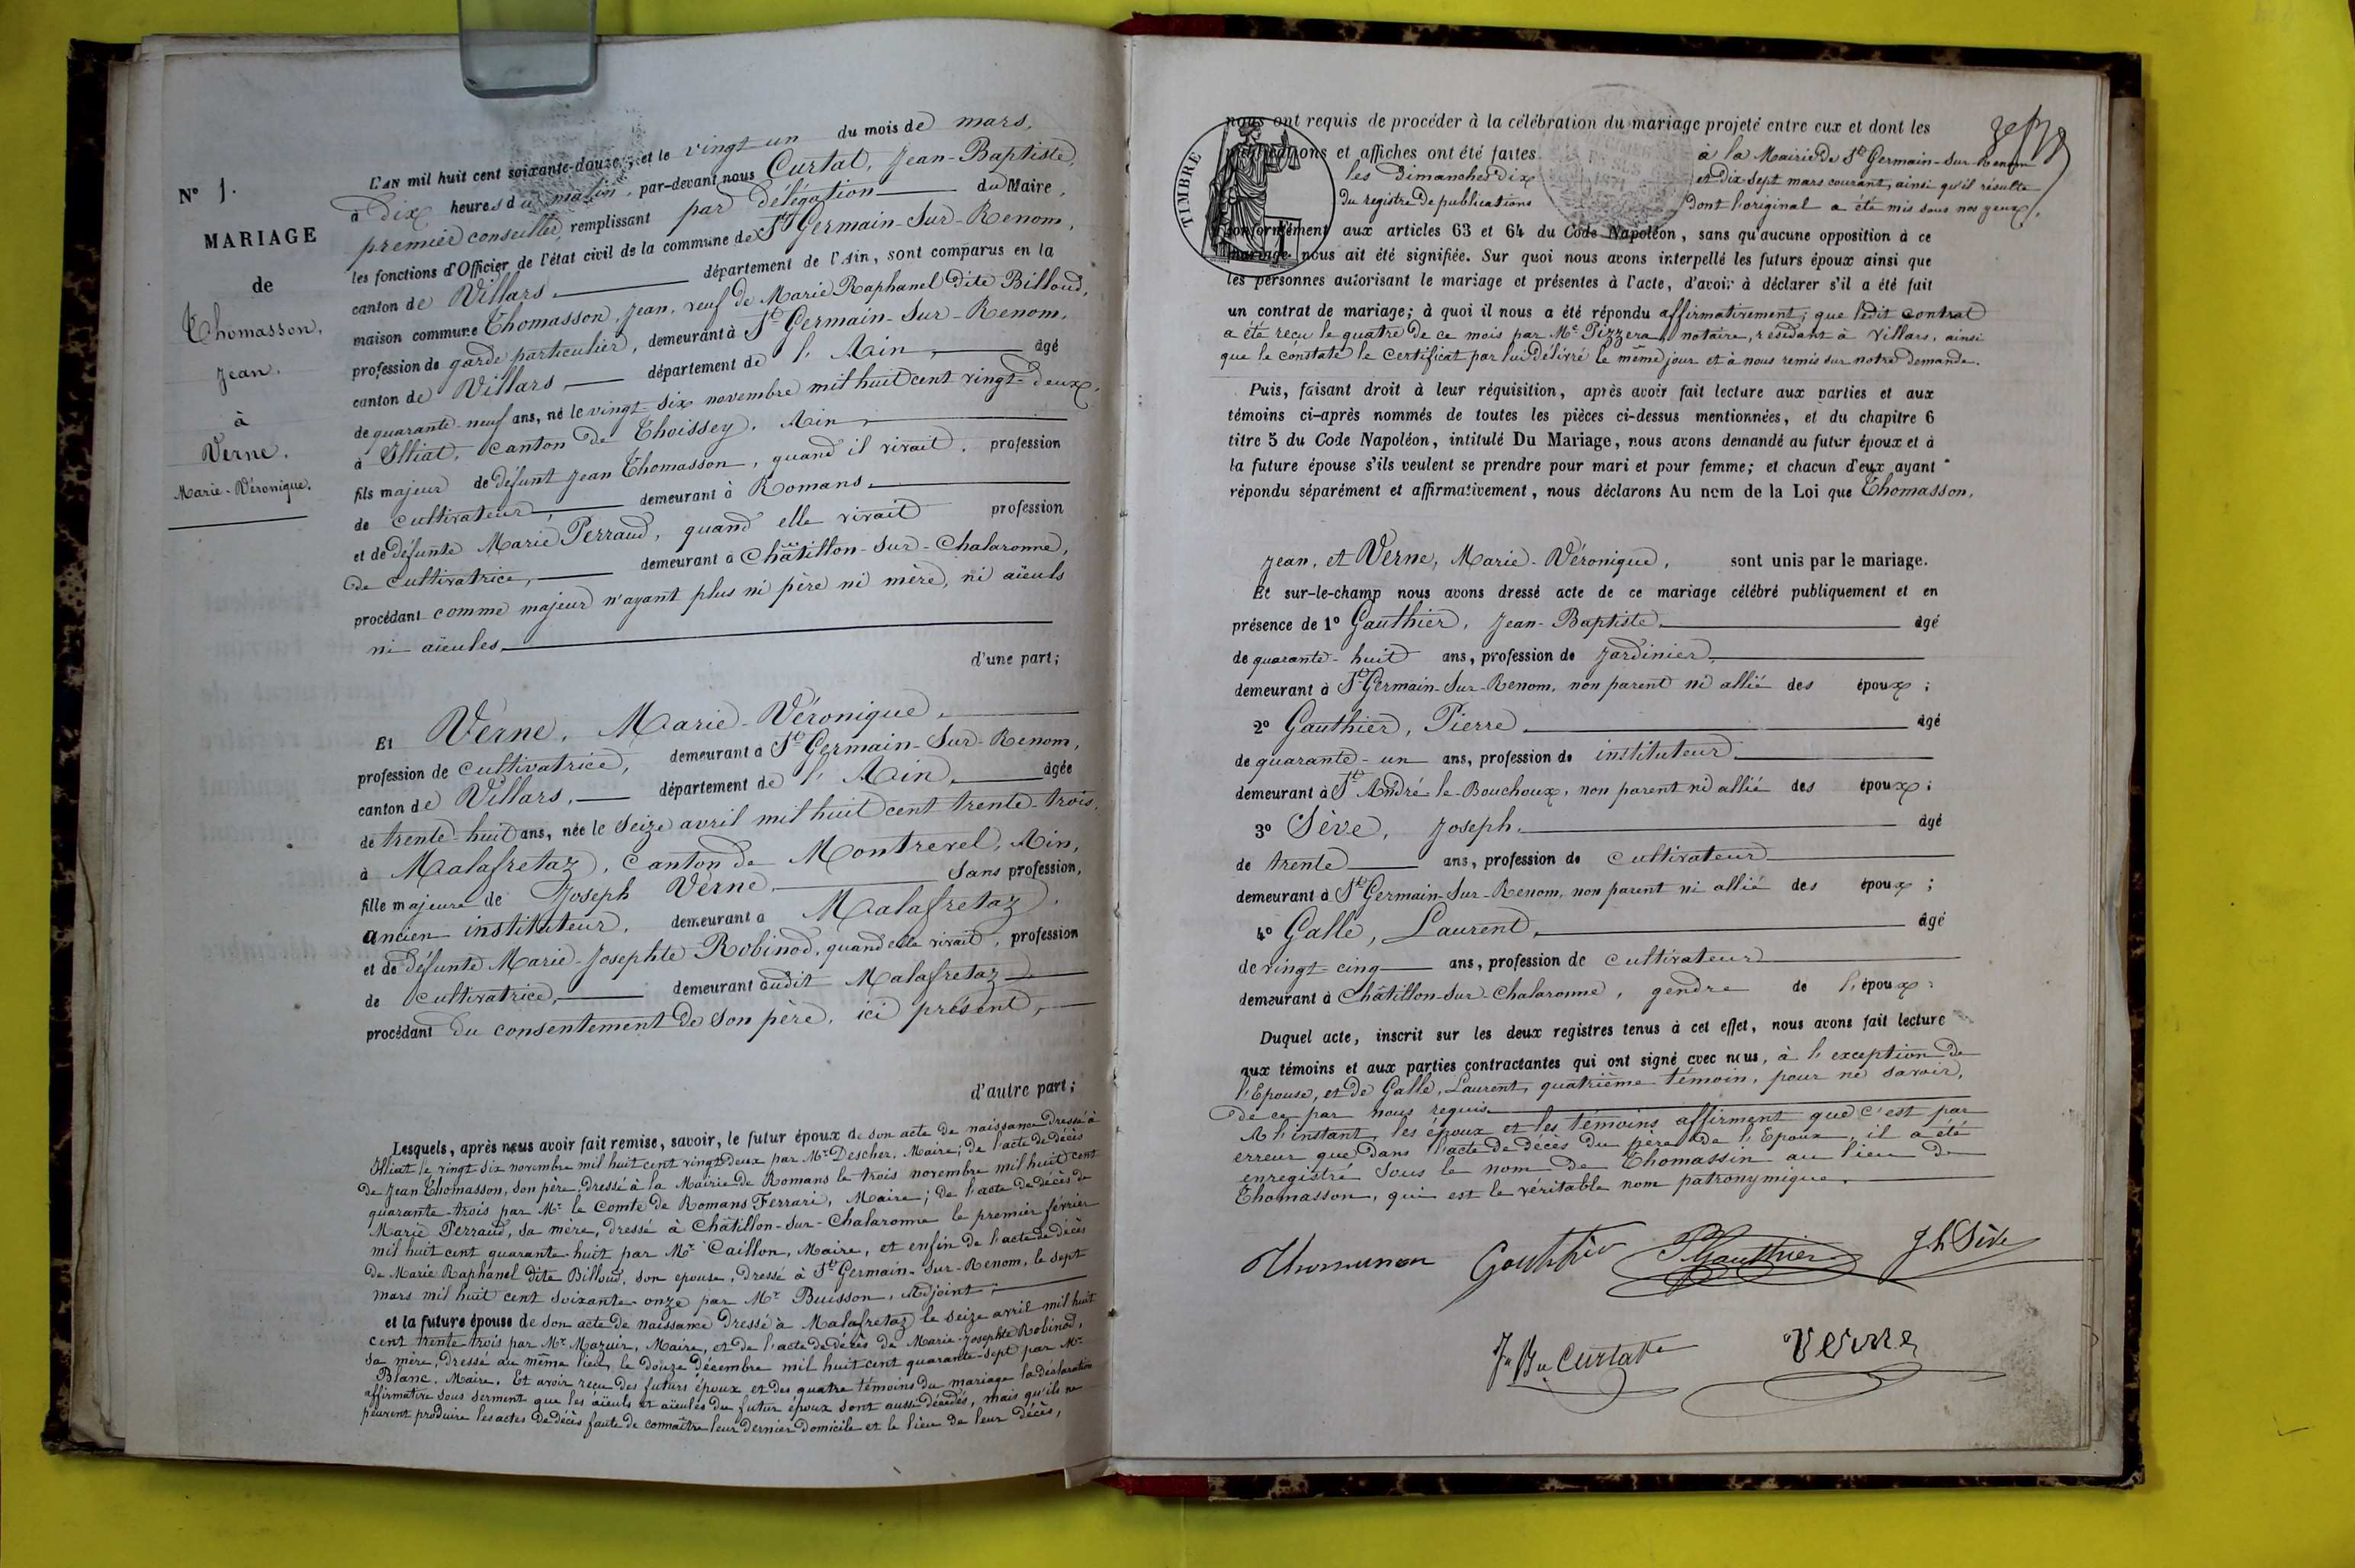 N° 1.
MARIAGE
de
Thomasson,
Jean.
à
Verne.
Marie-Véronique.
L'AN mil huit cent soixante-douze, et le vingt un du mois de mars,
à dix heures du matin, par-devant nous Curtat, Jean-Baptiste,
premier conseiller, remplissant par délégation du Maire,
les fonctions d'Officier de l'état civil de la commune de St Germain-Sur-Renom,
canton de Villars département de l'Ain, sont comparus en la
maison commune Thomasson, Jean, veuf de Marie Raphanel dite Billoud,
profession de garde particulier, demeurant à St Germain-Sur-Renom,
canton de Villars, département de l'Ain, âgé
de quarante-neuf ans, né le vingt-six novembre mil huit cent vingt-deux,
à Illiat, canton de Thoissey, Ain,
fils majeur de défunt Jean Thomasson, quand il vivait, profession
de cultivateur, demeurant à Romans,
et de défunte Marie Perraud, quand elle vivait profession
de cultivatrice, demeurant à Châtillon-Sur-Chalaronne,
procédant comme majeur n'ayant plus ni père ni mère, ni aïeuls
ni aïeules,
d'une part;
Et Verne, Marie-Véronique,
profession de cultivatrice, demeurant à St Germain-Sur-Renom,
canton de Villars, département de l'Ain, âgée
de trente-huit ans, née le seize avril mil huit cent trente-trois,
à Malafretaz, canton de Montrevel, Ain,
fille majeure de Joseph Verne, Sans profession,
ancien instituteur, demeurant à Malafretaz,
et de défunte Marie-Josephte Robinod, quand elle vivait, profession
de cultivatrice, demeurant audit Malafretaz
procédant du consentement de son père, ici présent,
d'autre part;
Lesquels, après nous avoir fait remise, savoir, le futur époux de son acte de naissance dressé à
Illiat le vingt six novembre mil huit cent vingt deux par Mr Descher, Maire; de l'acte de décès
de Jean Thomasson, son père, dressé à la Mairie de Romans le trois novembre mil huit cent
quarante-trois par Mr le Comte de Romans Ferrari, Maire; de l'acte de décès de
Marie Perraud, sa mère, dressé à Châtillon-Sur-Chalaronne le premier février
mil huit cent quarante-huit par Mr Caillon, Maire, et enfin de l'acte de décès
de Marie Raphanel dite Billoud, son épouse, dressé à St Germain-Sur-Renom, le sept
mars mil huit cent soixante-onze par Mr Buisson, Adjoint;
et la future épouse de son acte de naissance dressé à Malafretaz le seize avril mil huit
cent trente-trois par Mr Maire, et de l'acte de décès de Marie-Josephte Robinod,
sa mère, dressé au même lieu, le douze décembre mil huit cent quarante-sept par Mr
Blanc, Maire. Et avoir reçu des futurs époux et des quatre témoins du mariage la déclaration
affirmative sous serment que les aïeuls et aïeules du futur époux sont aussi décédés, mais qu'ils ne
peuvent produire les actes de décès faute de connaître leur dernier domicile et le lieu de leur décès,
TIMBRE
nous ont requis de procéder à la célébration du mariage projeté entre eux et dont les
publications et affiches ont été faites à la Mairie de St Germain-Sur-Renom
les Dimanches dix et dix-sept mars courant, ainsi qu'il résulte
du registre de publications dont l'original a été mis sous nos yeux,
conformément aux articles 63 et 64 du Code Napoléon, sans qu'aucune opposition à ce
mariage nous ait été signifiée. Sur quoi nous avons interpellé les futurs époux ainsi que
les personnes autorisant le mariage et présentes à l'acte, d'avoir à déclarer s'il a été fait
un contrat de mariage; à quoi il nous a été répondu affirmativement; que ledit contrat
a été reçu le quatre de ce mois par Me Pizzera, notaire, résidant à Villars, ainsi
que le constate le certificat par lui délivré le même jour et à nous remis sur notre demande.
Puis, faisant droit à leur réquisition, après avoir fait lecture aux parties et aux
témoins ci-après nommés de toutes les pièces ci-dessus mentionnées, et du chapitre 6
titre 5 du Code Napoléon, intitulé Du Mariage, nous avons demandé au futur époux et à
la future épouse s'ils veulent se prendre pour mari et pour femme; et chacun d'eux ayant
répondu séparément et affirmativement, nous déclarons Au nom de la Loi que Thomasson,
Jean, et Verne, Marie-Véronique, sont unis par le mariage.
Et sur-le-champ nous avons dressé acte de ce mariage célébré publiquement et en
présence de 1° Gauthier, Jean-Baptiste, âgé
de quarante-huit ans, profession de Jardinier,
demeurant à St Germain-Sur-Renom, non parent ni allié des époux;
2° Gauthier, Pierre, âgé
de quarante-un ans, profession de instituteur,
demeurant à St André-le-Bouchoux, non parent ni allié des époux;
3° Sève, Joseph, âgé
de trente ans, profession de cultivateur
demeurant à St Germain-Sur-Renom, non parent ni allié des époux;
4° Galle, Laurent, âgé
de vingt-cinq ans, profession de cultivateur
demeurant à Châtillon-Sur-Chalaronne, gendre de l'époux;
Duquel acte, inscrit sur les deux registres tenus à cet effet, nous avons fait lecture
aux témoins et aux parties contractantes qui ont signé avec nous, à l'exception de
l'Epouse, et de Galle, Laurent, quatrième témoin, pour ne savoir,
de ce par nous requis
A l'instant, les époux et les témoins affirment que c'est par
erreur que dans l'acte de décès du père de l'Epoux, il a été
enregistré sous le nom de Thomassin au lieu de
Thomasson, qui est le véritable nom patronymique.
Thomasson Gauthier P. Gauthier Jh Sève
J. Bte Curtat Verne